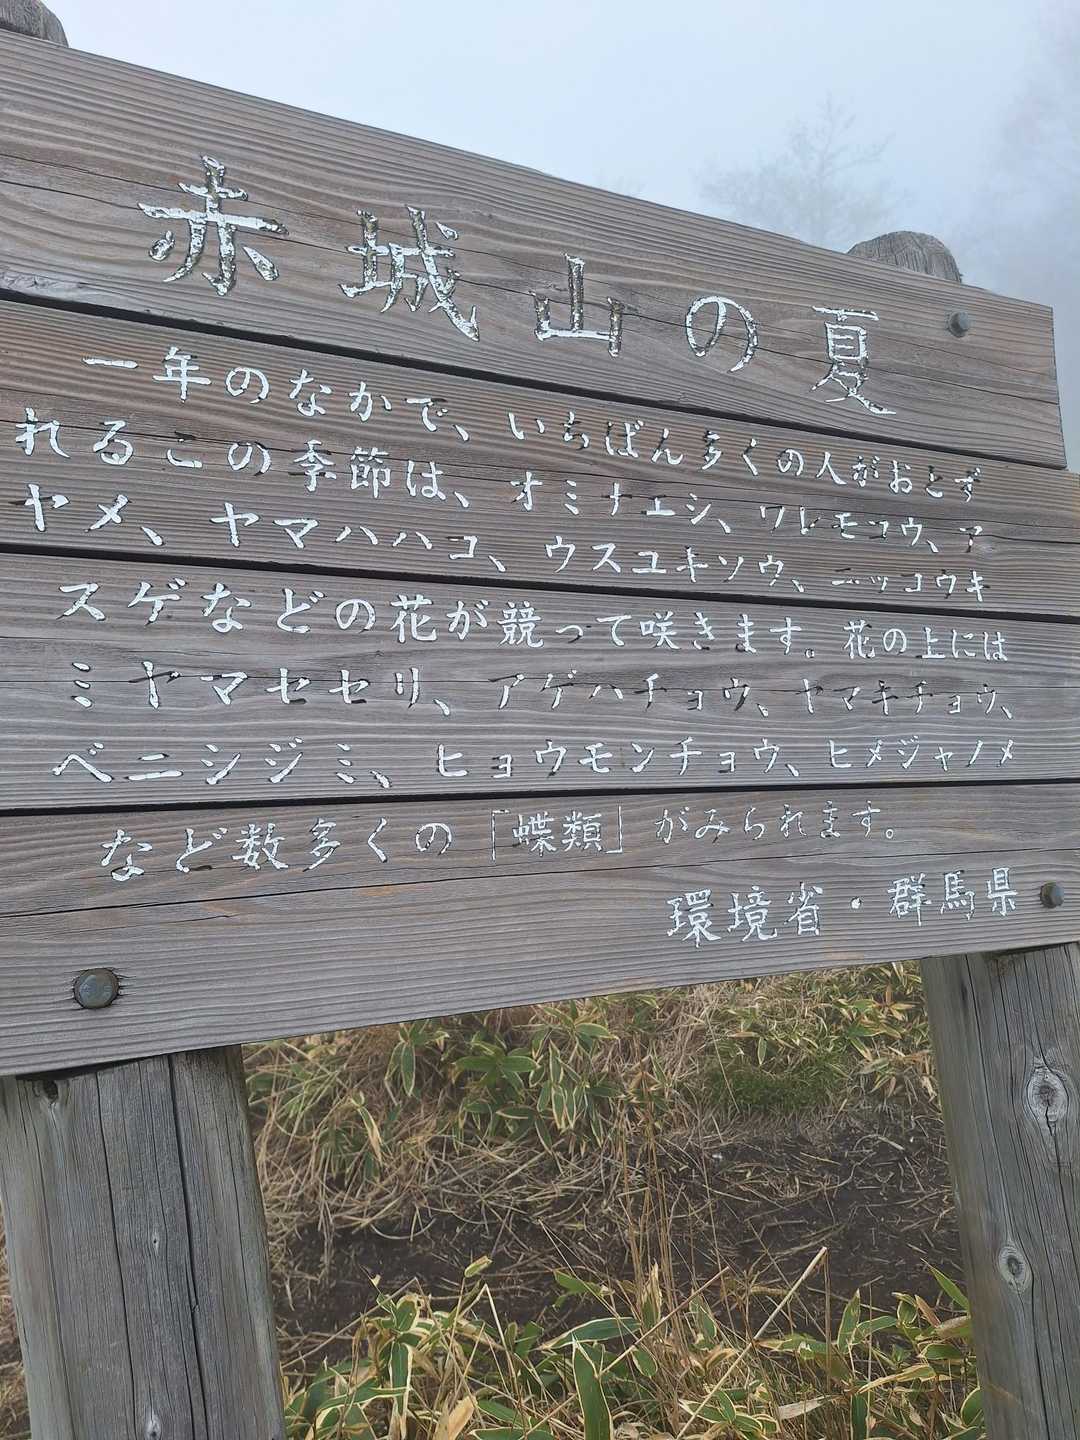 赤城山の夏
一年のなかで、いちばん多くの人がおとず
れるこの季節は、オミナエシ、ワレモコウ、ア
ヤメ、ヤマハハコ、ウスユキソウ、ニッコウキ
スゲなどの花が競って咲きます。花の上には
ミヤマセセリ、アゲハチョウ、ヤマキチョウ、
ベニシジミ、ヒョウモンチョウ、ヒメジャノメ
など数多くの「蝶類」がみられます。
環境省・群馬県